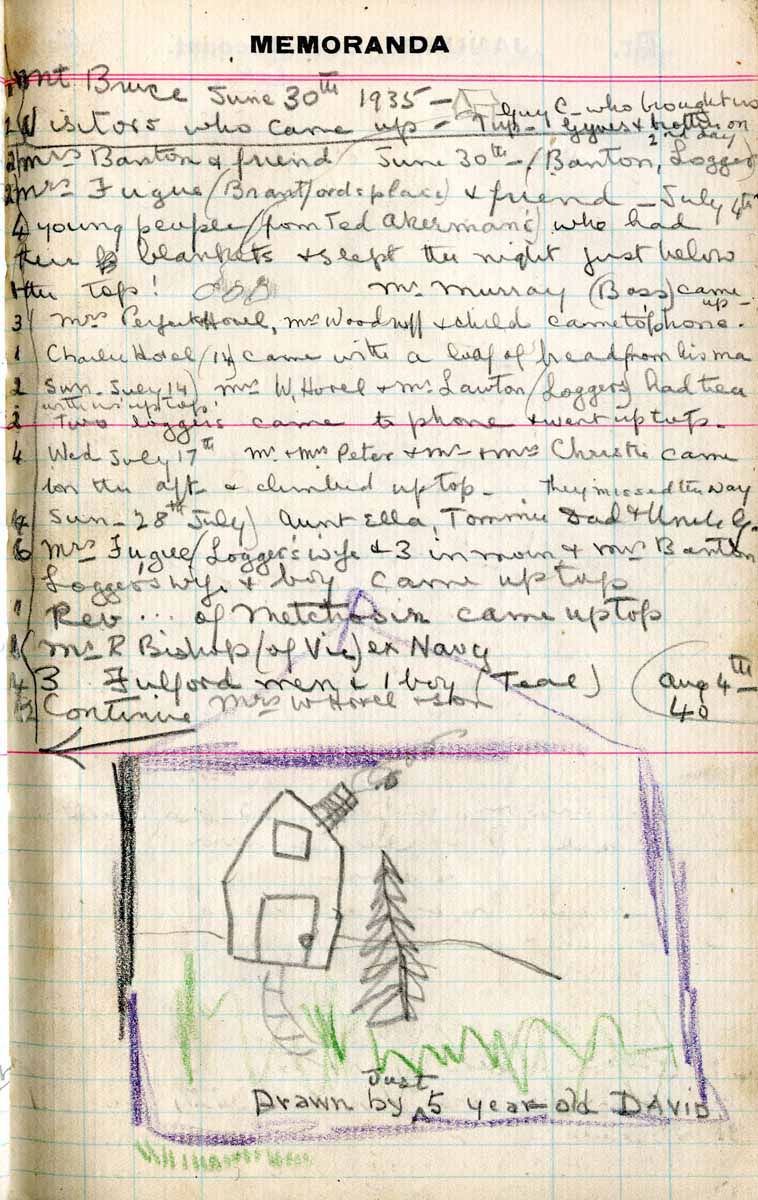 MEMORANDA
Mt Bruce June 30th 1935 - Guy C - who brought us
2 Visitors who came up - Tups - Gynes & brother on
2nd day
2 Mrs Banton & friend June 30th - (Banton, Logger)
2 Mrs Fugue (Brantfords place) & friend - July 4th
4 young people (from Ted Akerman's) who had
their blankets & slept the night just below
1 the top! Mr. Murray (Boss) came up -
3 Mrs Horel, Mrs Woodruff & child came to phone.
1 Charlie Horel (14) came with a loaf of bread from his ma
2 Sun - July 14) Mrs W. Horel & Mr Lawton (Loggers) had tea
with us up top!
2 Two loggers came to phone & went up top.
4 Wed July 17th Mr. & Mrs Peter & Mr & Mrs Christie came
for the aft. & climbed up top - They missed the way
4 Sun - 28th July) Aunt Ella, Tommie Dad & Uncle G.
6 Mrs Fugue (Logger's wife & 3 in main & Mrs Banton
Logger's wife & boy came up top
1 Rev ... of Metchosin came up top
1 (Mr R Bishop (of Vic) ex Navy
4 3 Fulford men & 1 boy (Teal) (Aug 4th -
2 Continue Mrs W Horel & son 40
Just
Drawn by ^ 5 year old DAVID